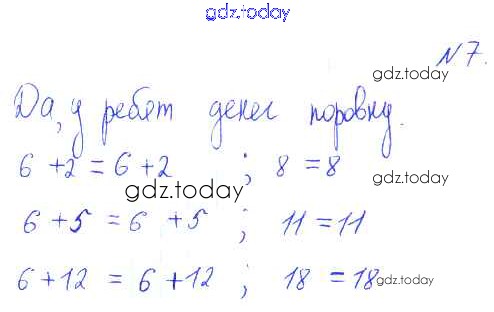 gdz.today
N 7.
gdz.today
Да, у ребят денег поровну.
6 + 2 = 6 + 2 ; 8 = 8
gdz.today
gdz.today
6 + 5 = 6 + 5 ; 11 = 11
6 + 12 = 6 + 12 ; 18 = 18
gdz.today